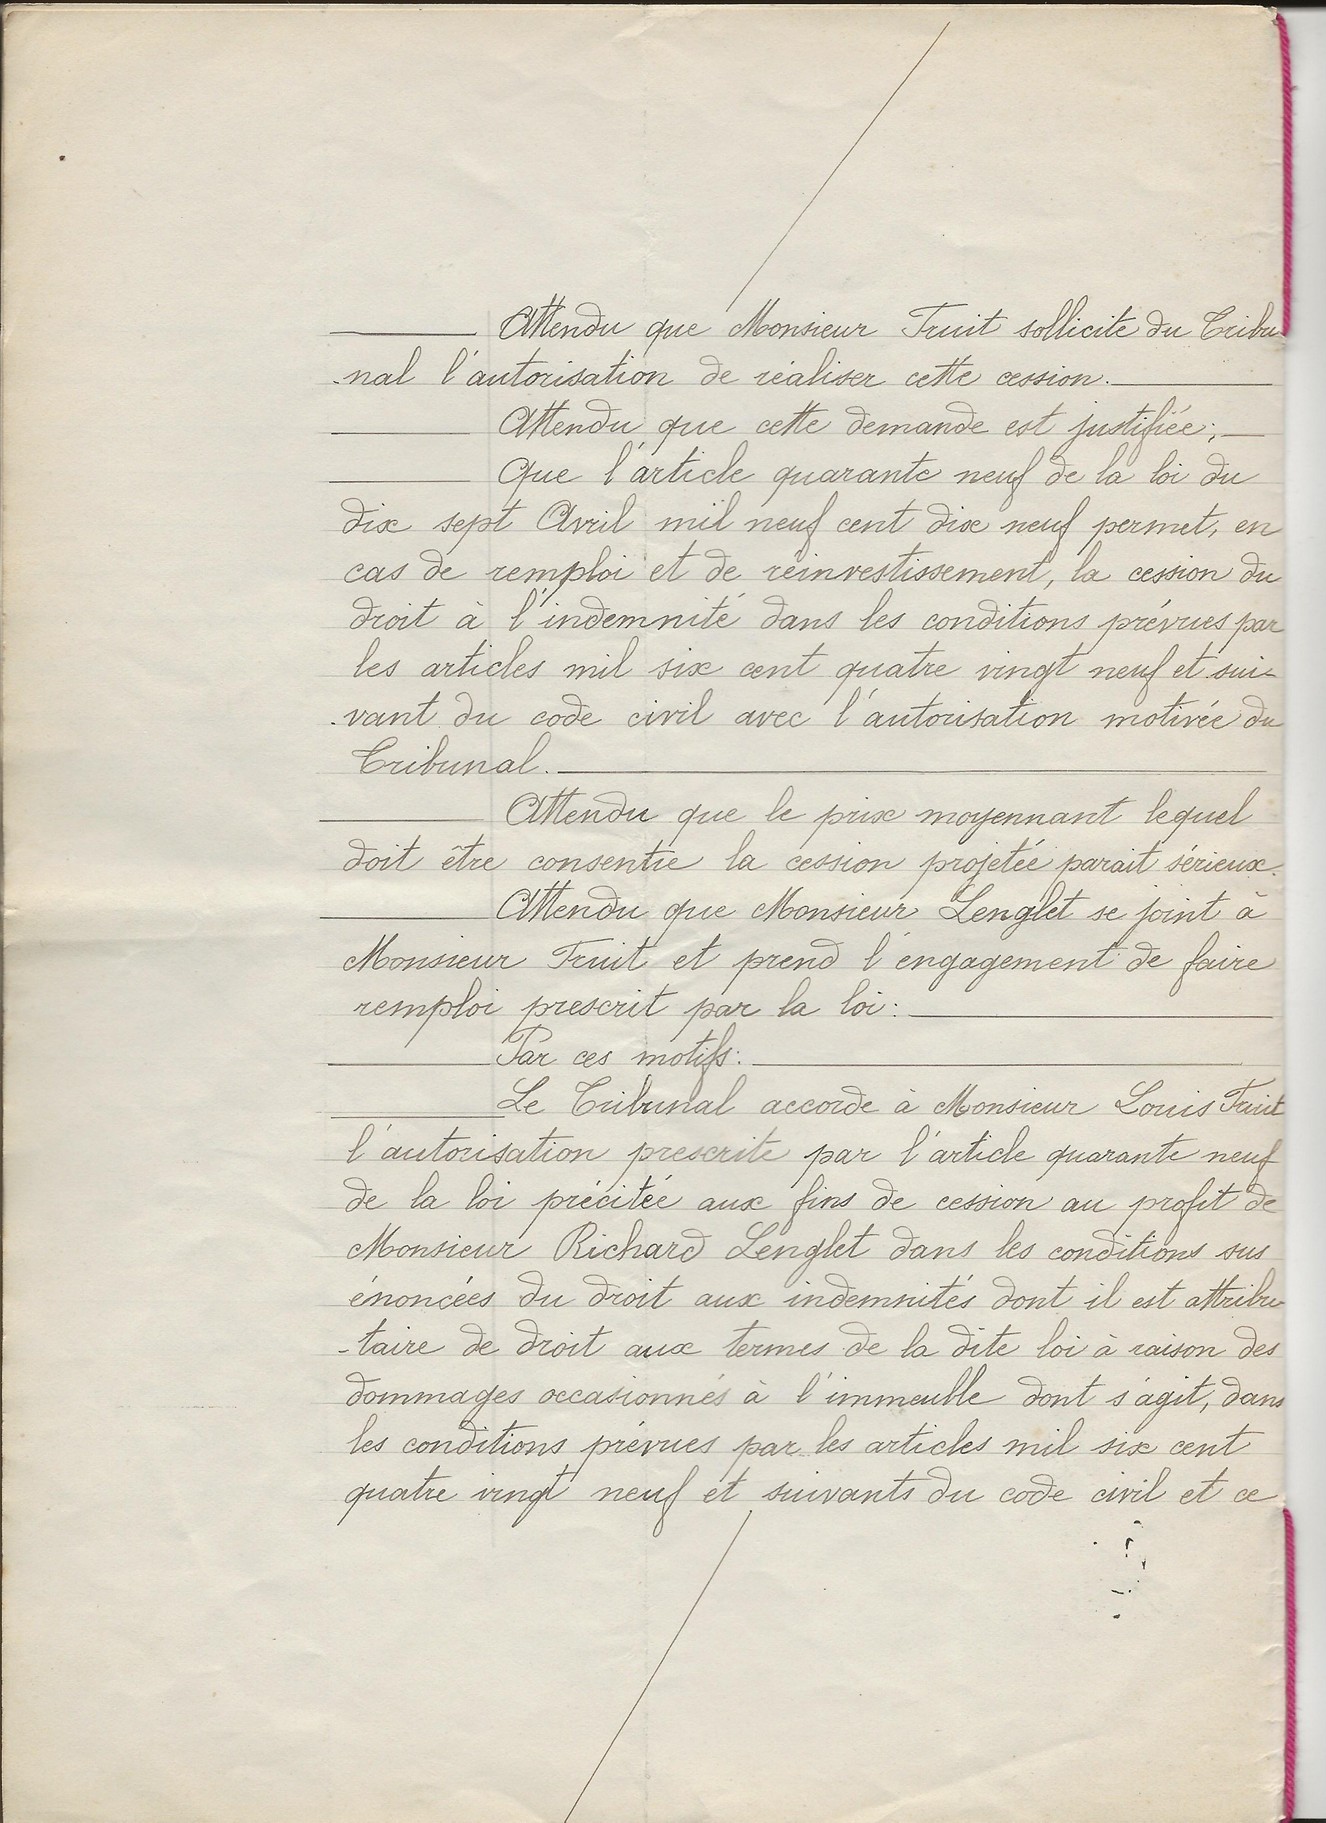 Attendu que Monsieur Fruit sollicite du Tribu
-nal l'autorisation de réaliser cette cession.
Attendu que cette demande est justifiée;
Que l'article quarante neuf de la loi du
dix sept Avril mil neuf cent dix neuf permet, en
cas de remploi et de réinvestissement, la cession du
droit à l'indemnité dans les conditions prévues par
les articles mil six cent quatre vingt neuf et sui-
-vant du code civil avec l'autorisation motivée du
Tribunal.
Attendu que le prix moyennant lequel
doit être consentie la cession projetée parait sérieux.
Attendu que Monsieur Lenglet se joint à
Monsieur Fruit et prend l'engagement de faire
remploi prescrit par la loi:
Par ces motifs:
Le Tribunal accorde à Monsieur Louis Fruit
l'autorisation prescrite par l'article quarante neuf
de la loi précitée aux fins de cession au profit de
Monsieur Richard Lenglet dans les conditions sus
énoncées du droit aux indemnités dont il est attribu
-taire de droit aux termes de la dite loi à raison des
dommages occasionnés à l'immeuble dont s'agit, dans
les conditions prévues par les articles mil six cent
quatre vingt neuf et suivants du code civil et ce